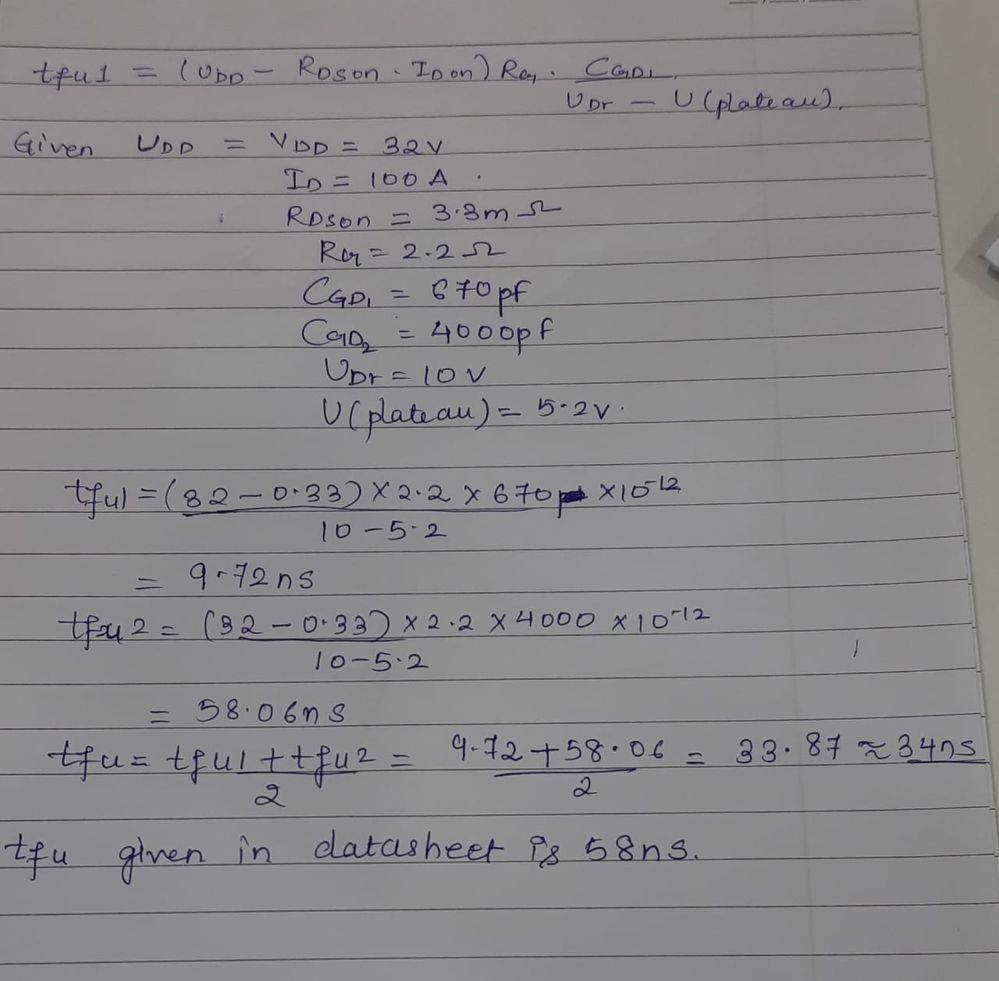 tfu1 = (UDD - RDSon · IDon) RG · CGD1 / UDr - U(plateau).
Given UDD = VDD = 32V
ID = 100 A .
RDSon = 3.3m Ω
RG = 2.2 Ω
CGD1 = 670pf
CGD2 = 4000pf
UDr = 10 V
U(plateau) = 5.2v.
tfu1 = (32 - 0.33) × 2.2 × 670 × 10^-12 / 10 - 5.2
= 9.72ns
tfu2 = (32 - 0.33) × 2.2 × 4000 × 10^-12 / 10 - 5.2
= 58.06ns
tfu = tfu1 + tfu2 / 2 = 9.72 + 58.06 / 2 = 33.87 ≈ 34ns
tfu given in datasheet is 58ns.